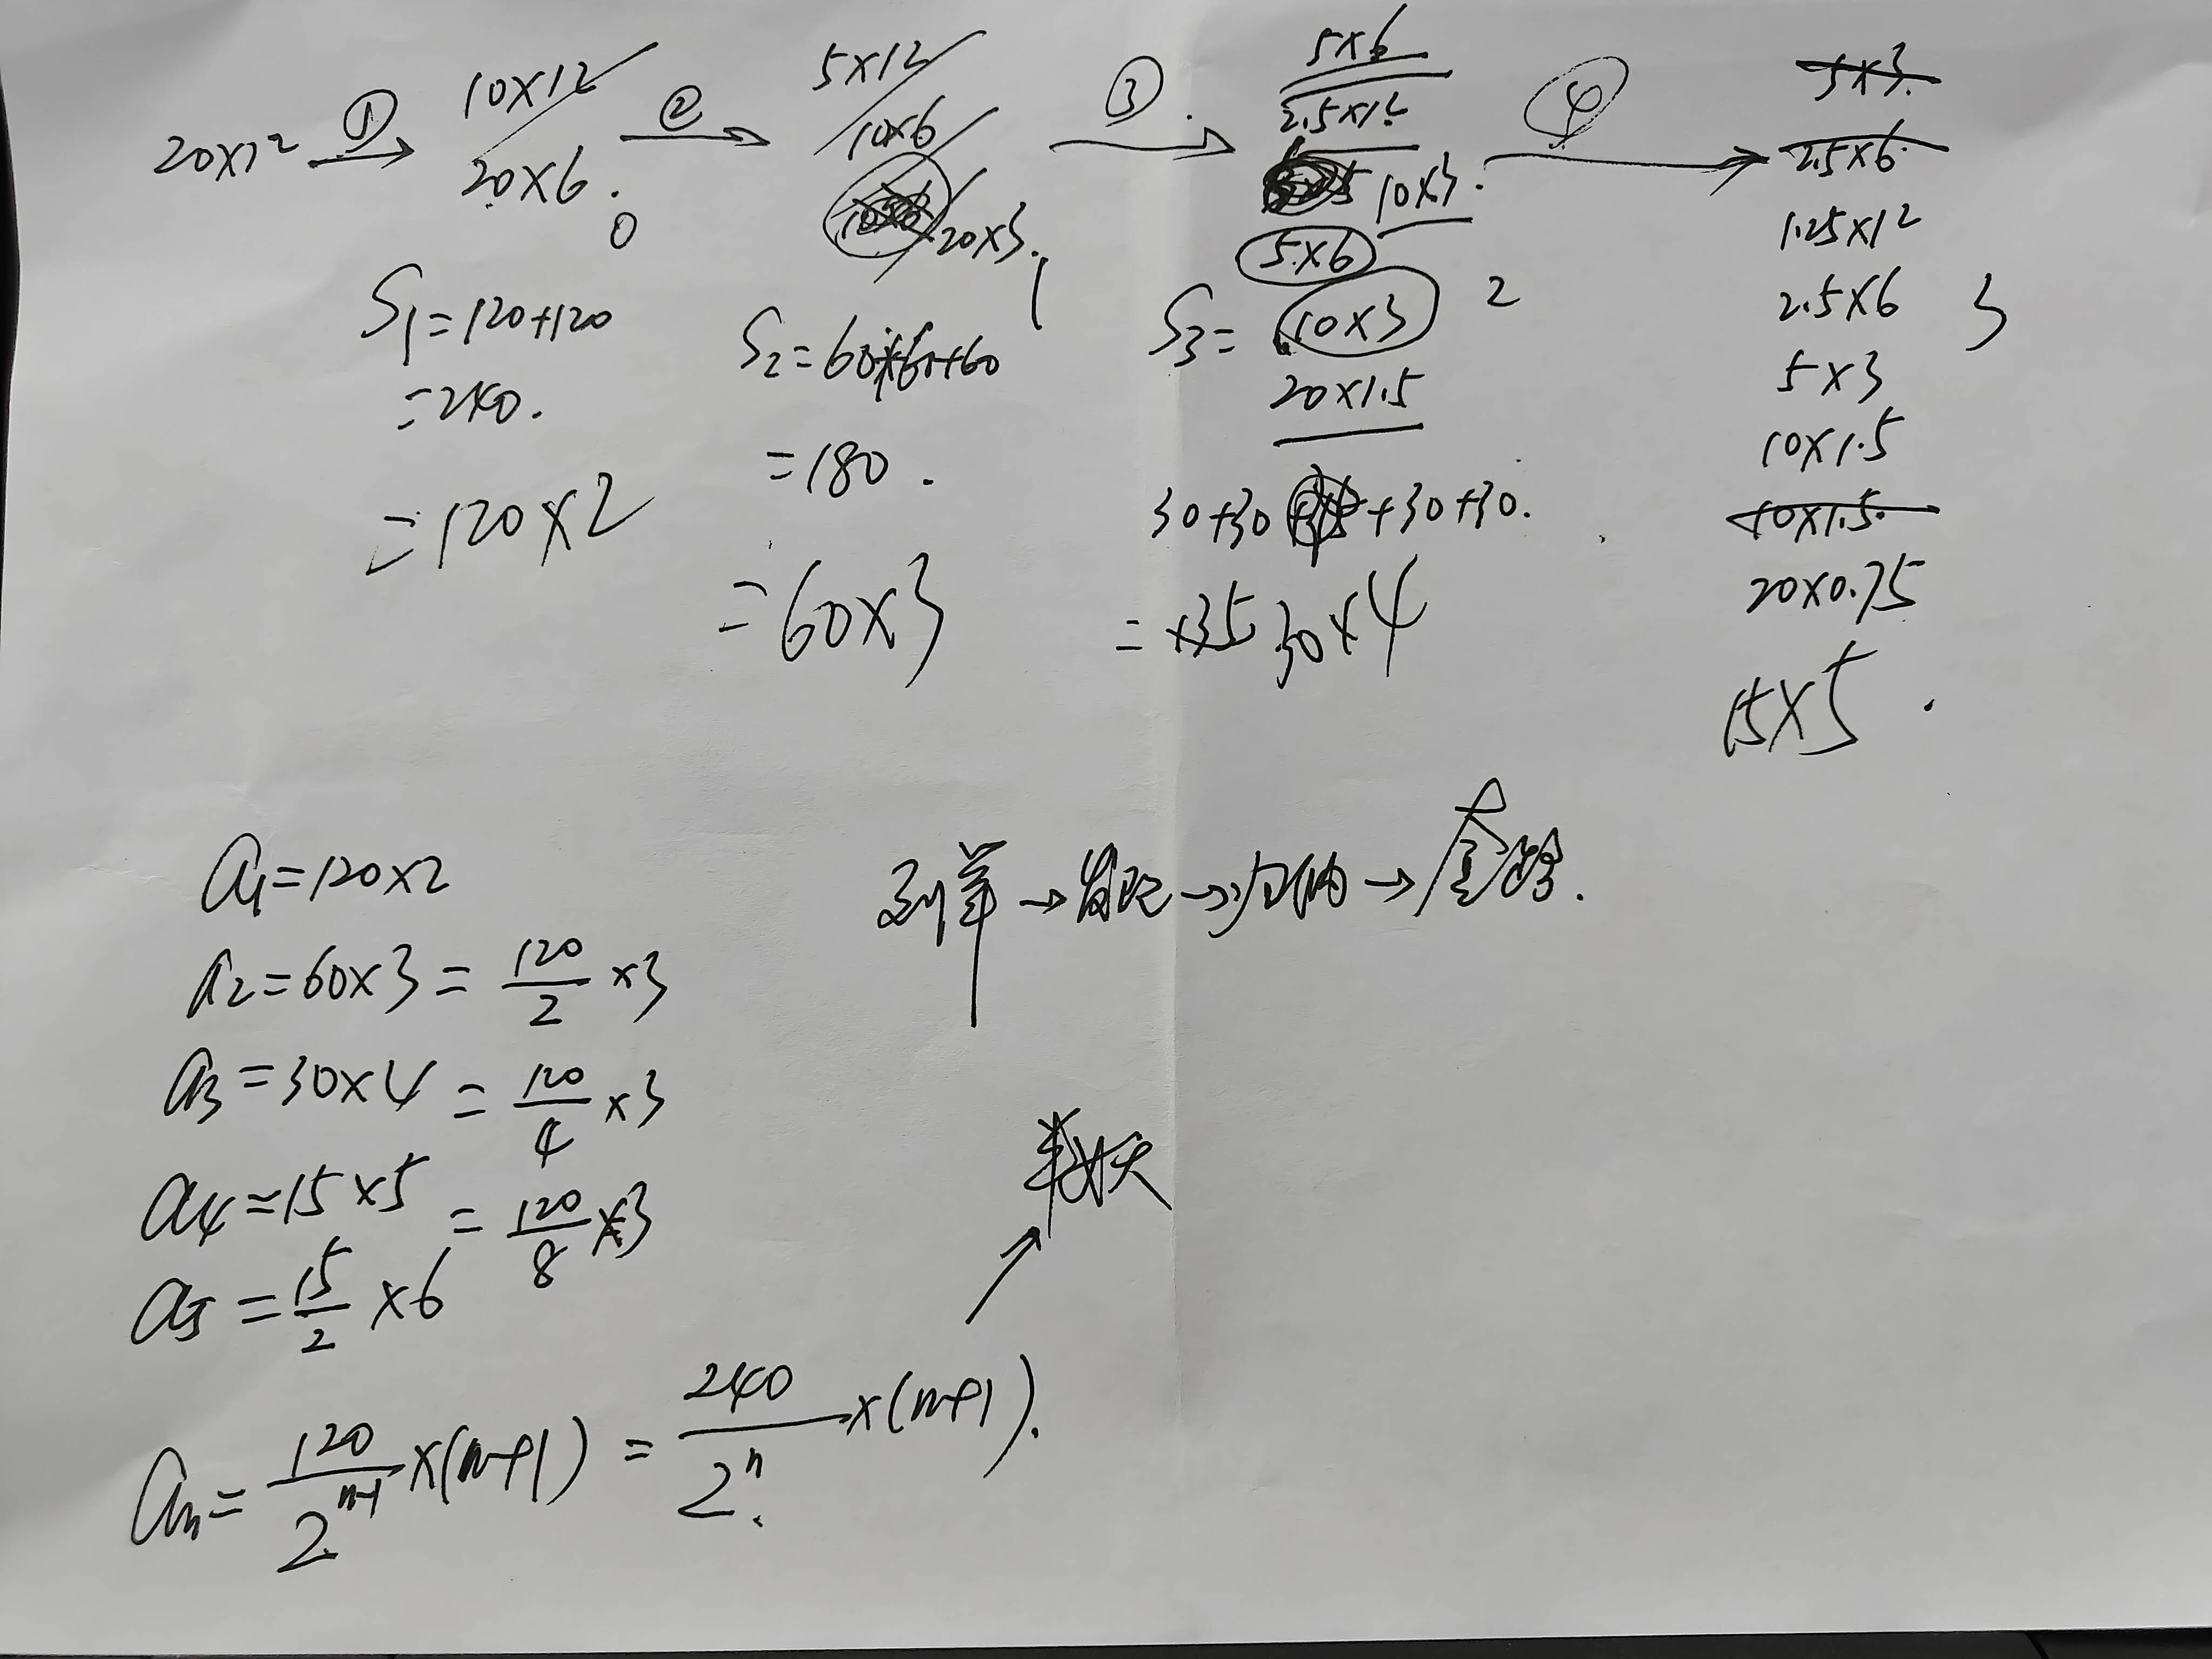 20×12 ① → 10×12
20×6.
0
② → 5×12
10×6
20×3.
1
③ → 5×6
2.5×12
10×3.
5×6
10×3
20×1.5
2
④ → 5×3.
2.5×6.
1.25×12
2.5×6
5×3
10×1.5
10×1.5.
20×0.75
3
15×5.
S1=120+120
=240.
=120×2
S2=60+60+60
=180.
=60×3
S3=
30+30+30+30.
= 30×4
a1=120×2
a2=60×3=120/2×3
a3=30×4=120/4×3
a4=15×5=120/8×3
a5=15/2×6
an=120/2^(n-1)×(n+1)=240/2^n×(n+1).
列举→发现→归纳→